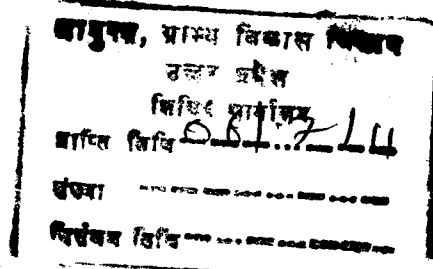 आयुक्त, ग्राम्य विकास विभाग
उत्तर प्रदेश
शिविर कार्यालय
प्राप्ति तिथि
संख्या
निर्गमन तिथि